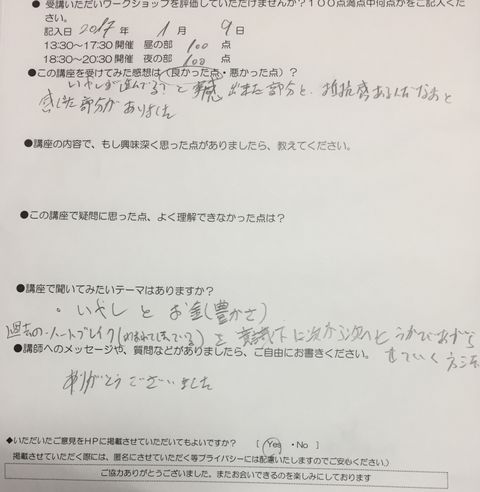 ● 受講いただいたワークショップを評価していただけませんか？１００点満点中何点かをご記入くだ
さい。
記入日 2017 年 1 月 9 日
13:30～17:30 開催 昼の部 100 点
18:30～20:30 開催 夜の部 100 点
●この講座を受けてみた感想は（良かった点・悪かった点）？
いやしが進んでる？と実感 出来た部分と、抵抗感あるんだなあと
感じた部分がありました
●講座の内容で、もし興味深く思った点がありましたら、教えてください。
●この講座で疑問に思った点、よく理解できなかった点は？
●講座で聞いてみたいテーマはありますか？
・いやしとお金(豊かさ)
過去のハートブレイク( れて )を 意識下に次から次へとうかびあがら
せていく方法
●講師へのメッセージや、質問などがありましたら、ご自由にお書きください。
ありがとうございました
◆いただいたご意見をHPに掲載させていただいてもよいですか？ [ Yes ・No ]
掲載させていただく際には、匿名にさせていただく等プライバシーには配慮いたしますのでご安心ください。）
ご協力ありがとうございました、またお会いできるのを楽しみにしております